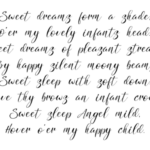 Sweet dreams form a shade,
O'er my lovely infants head.
Sweet dreams of pleasant streams
By happy silent moony beams
Sweet sleep with soft down
Weave thy brows an infant crown.
Sweet sleep Angel mild,
Hover o'er my happy child.